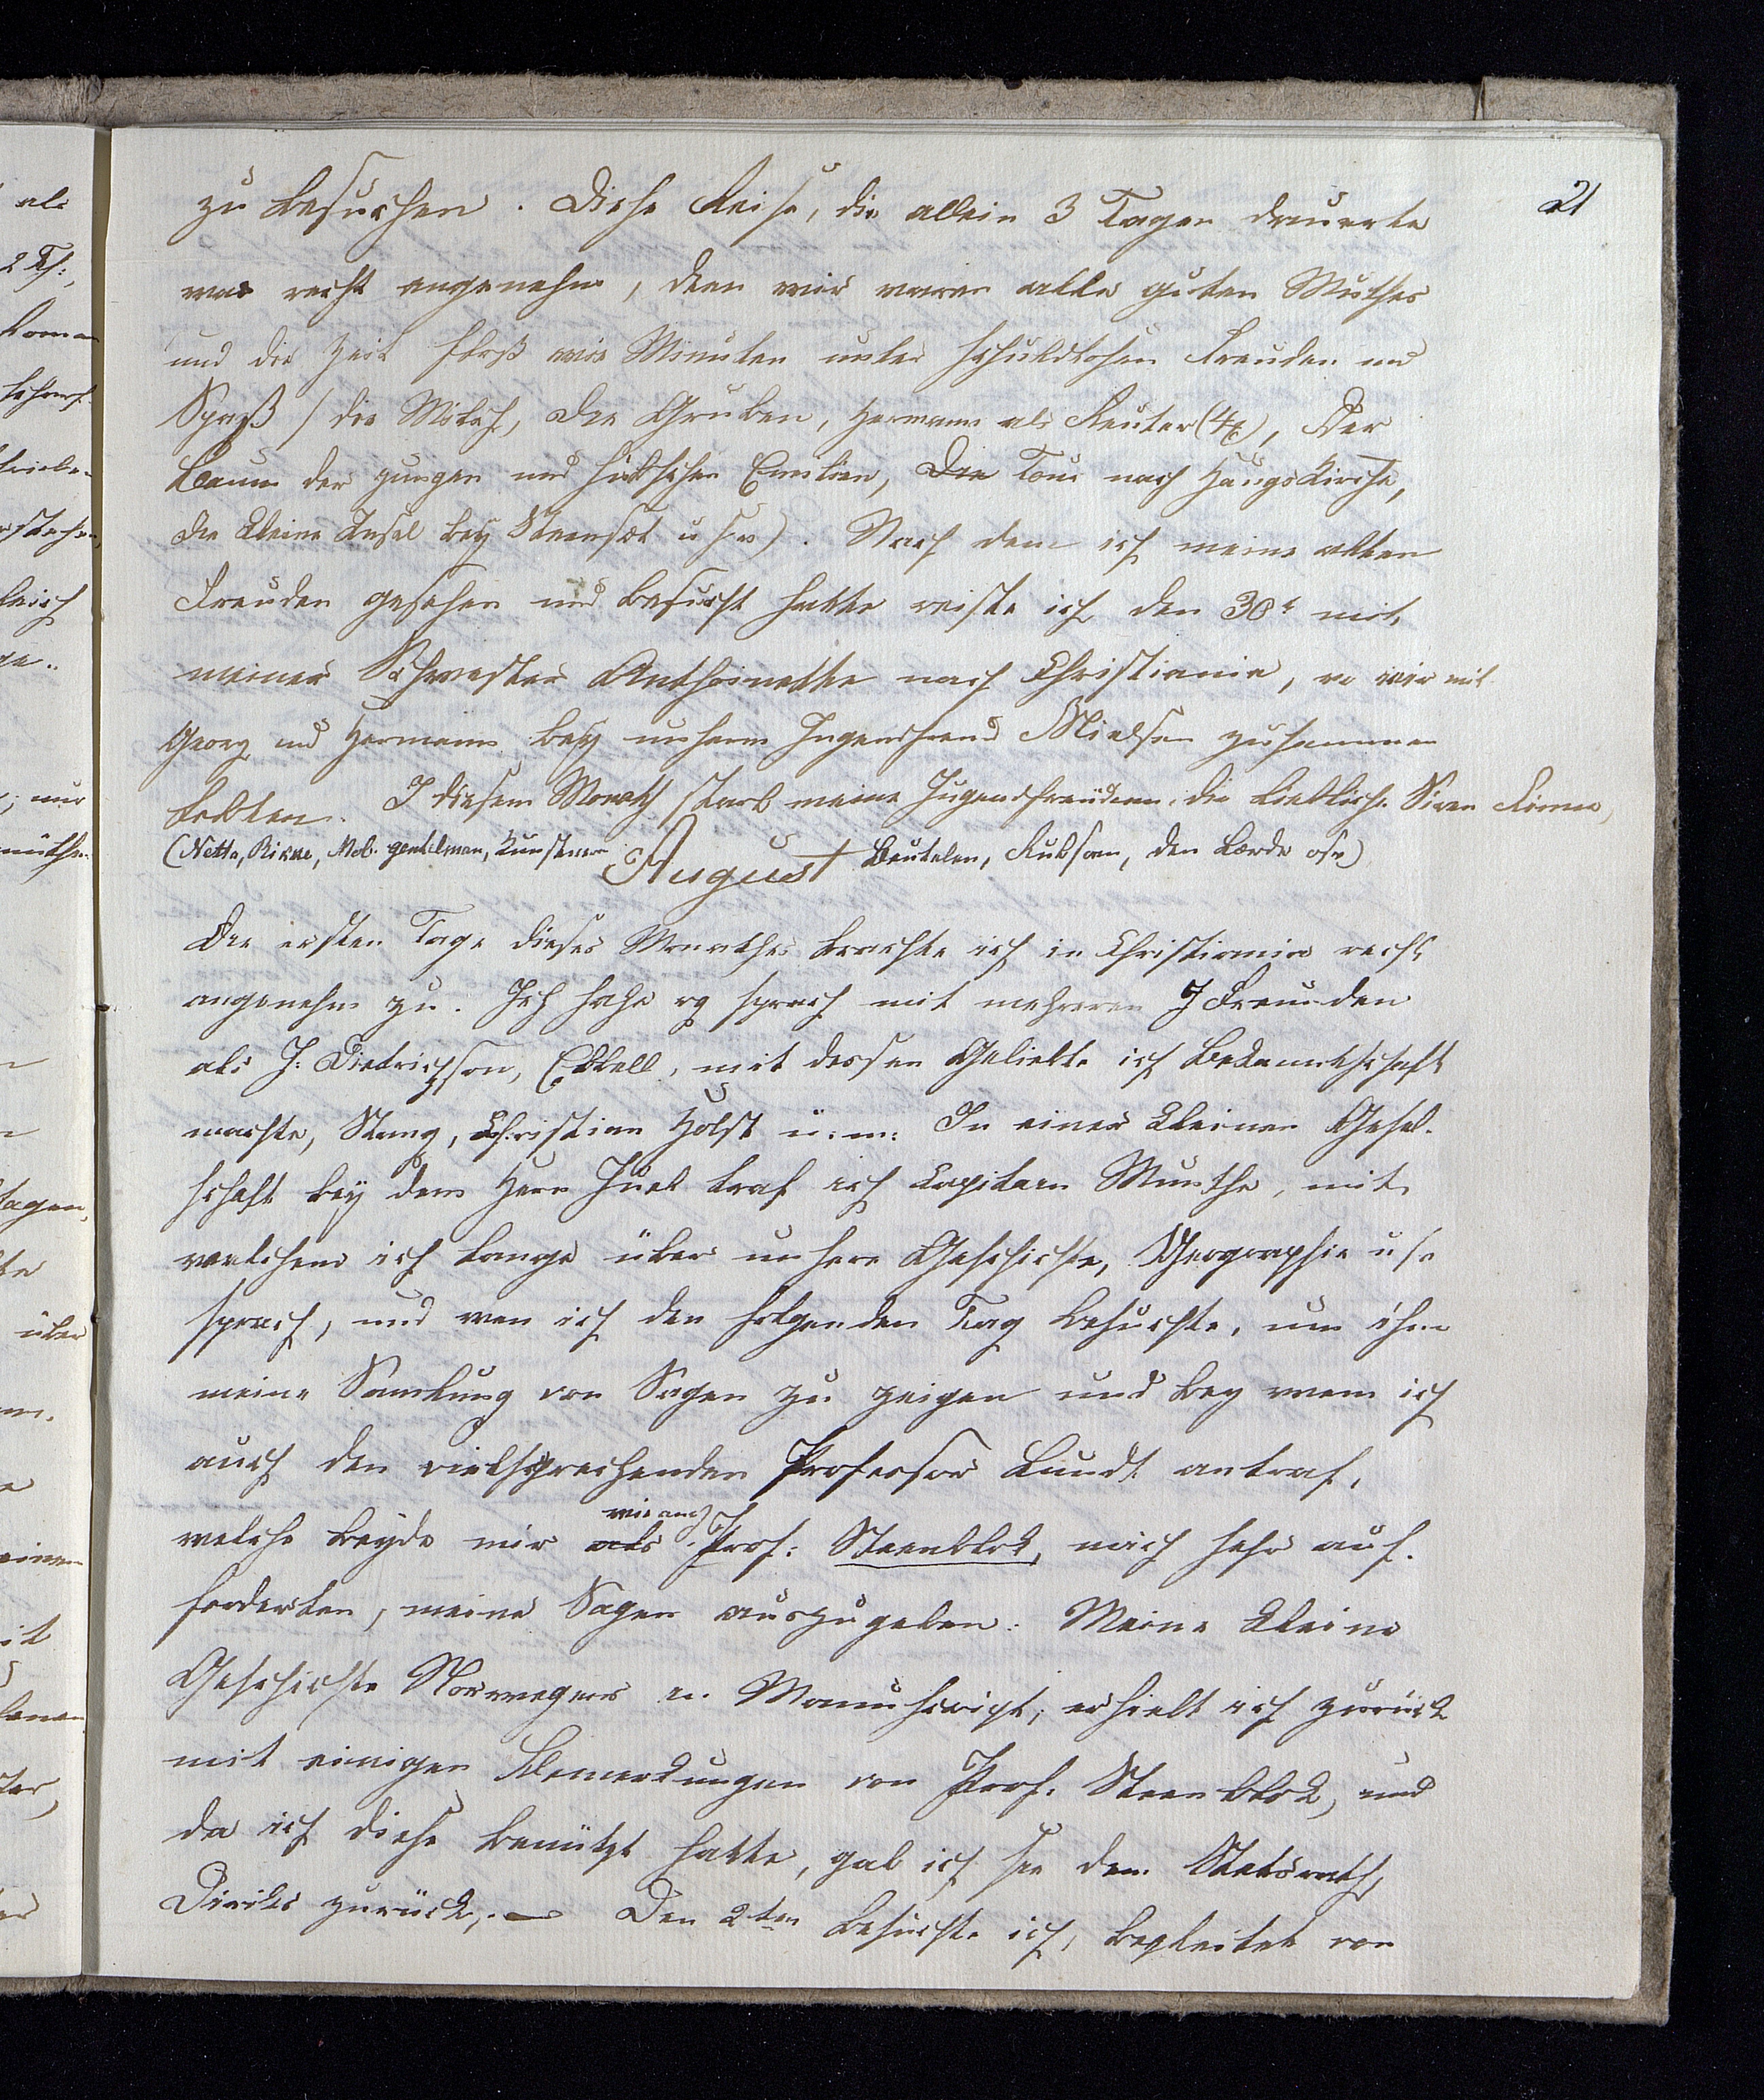 21
zu besuchen. Diese Reise, die allein 3 Tagen dauerte
war recht angenehm, den wir waren alle guten Muthes
und die Zeit floß wie Minuten unter schuldlosen Freuden und
Spaß / die Milch, die Gruben, Hermann als Reuter (4/4), Der
Baum der jungen und hübschen Emilien, Die Tour nach Haugs Kirche,
die kleine Insel bey Steensæt u s w). Nach dem ich meine alten
Freunden gesehen und besucht hatte reiste ich den 30t mit
meiner Schwester Anthoinette nach Christiania, wo wir mit
Georg und Hermann bey unserm Jugendfreund Nielsen zusammen
lebten. I diesem Monath starb meine Jugendfreundinn, die liebliche Siren
(Netta, Mob. gentelman, Kunstnere Beutelen, Rubsam, den Lærde osv)
August
Die ersten Tage dieses Monathes brachte ich in Christiania recht
angenehm zu. Ich sahe og sprach mit mehreren J Freunden
als J: Dietrichson, Ebbell, mit dessen Geliebte ich Bekanntschaft
machte, Stang, Christian Holst u: m: In einer kleinen Gesel-
schaft bey dem Herr Juel traf ich Capitain Munthe, mit
welchem ich lange über unsere Geschichte, Geographie u s v
sprach, und wen ich den folgenden Tag besuchte, um ihm
meine Samlung von Sagen zu zeigen und bey wem ich
auch den vielsprechenden Professor Lundt antraf,
welche beyde mir als wie auch Prof: Steenblok, mich sehr auf-
forderten, meine Sagen auszugeben. Meine kleine
Geschichte Norwegens in Manuscript, erhielt ich zurück
mit einigen Bemerkungen von Prof. Steenblok, und
da ich diese benützt hatte, gab ich sie dem Statsrath
Diriks zurück, — Den 2ten besuchte ich, begleitet von